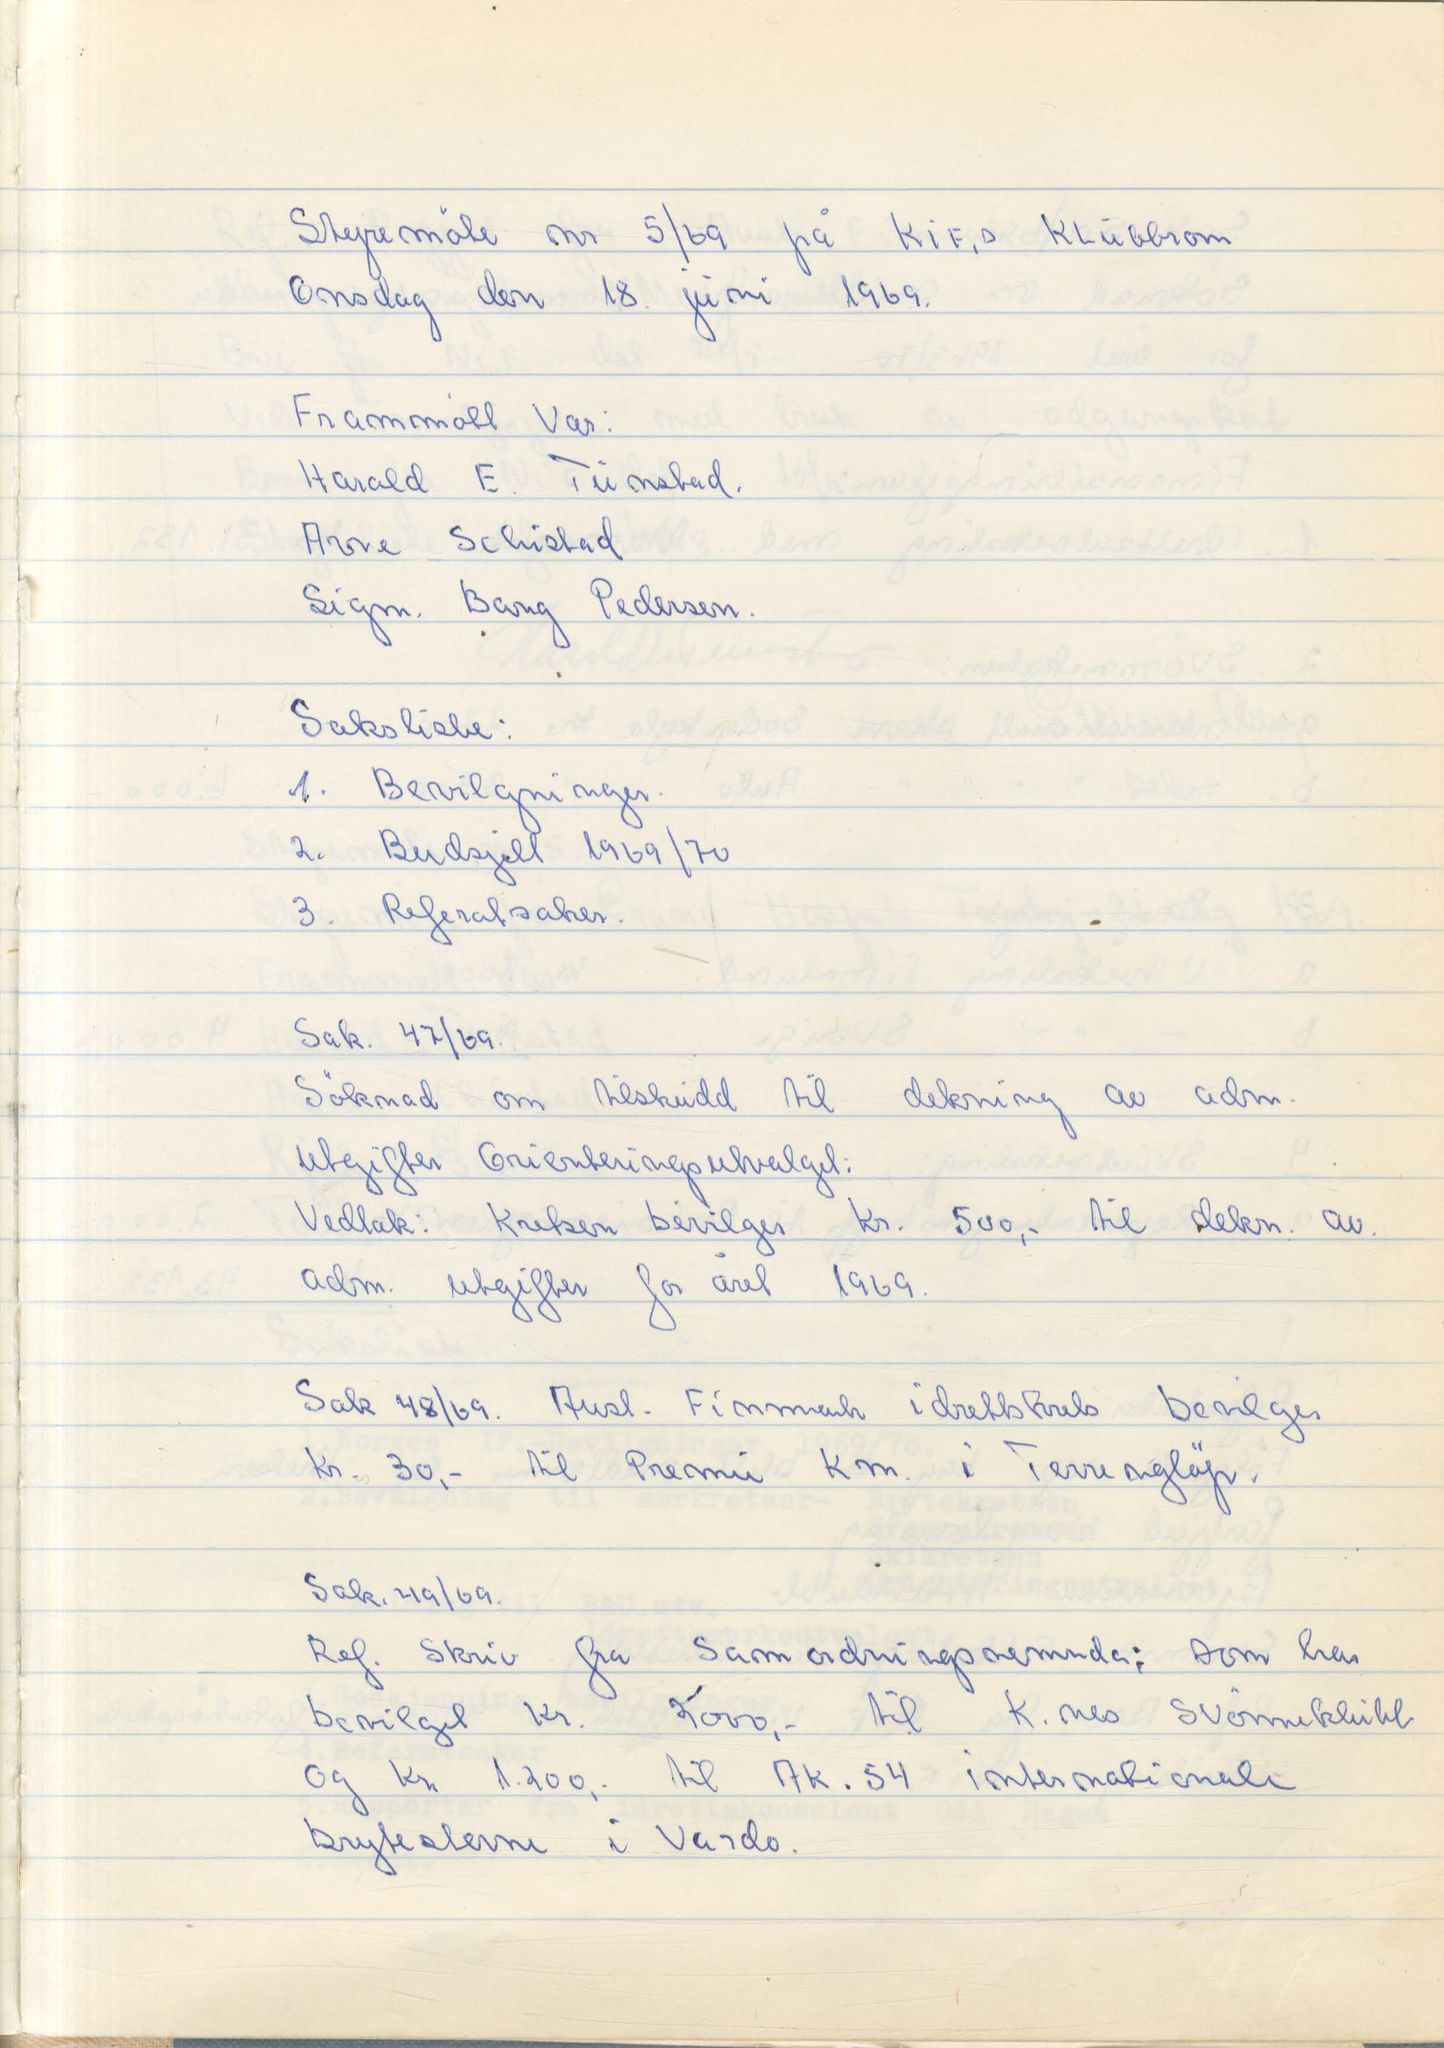 Styremöte nr 5/69 på KiF,s Klübbrom
Onsdag den 18. jüni 1969.
Frammött Var:
Harald E. Tünstad.
Arve Schistad
Sigm. Bang Pedersen.
Saksliste:
1. Bevilgninger.
2. Budsjett 1969/70
3. Referatsaker.
Sak. 47/69.
Söknad om tilskudd til dekning av adm.
utgifter Orienteringsutvalget:
Vedtak: Kretsen bevilger Kr. 500,- til dekn. av.
adm. utgifter for året 1969.
Sak 48/69. Aust. Finnmark idrettskrets bevilges
Kr. 30,- til Premie Km. i Terrengløp.
Sak. 49/69.
Ref. Skriv fra Samordningsnemnda; som har
bevilget Kr. 000,- til K.nes Svömmeklubb
og Kr. 1.200,- til AK. 54 internationale
brytestevne i Vardo.